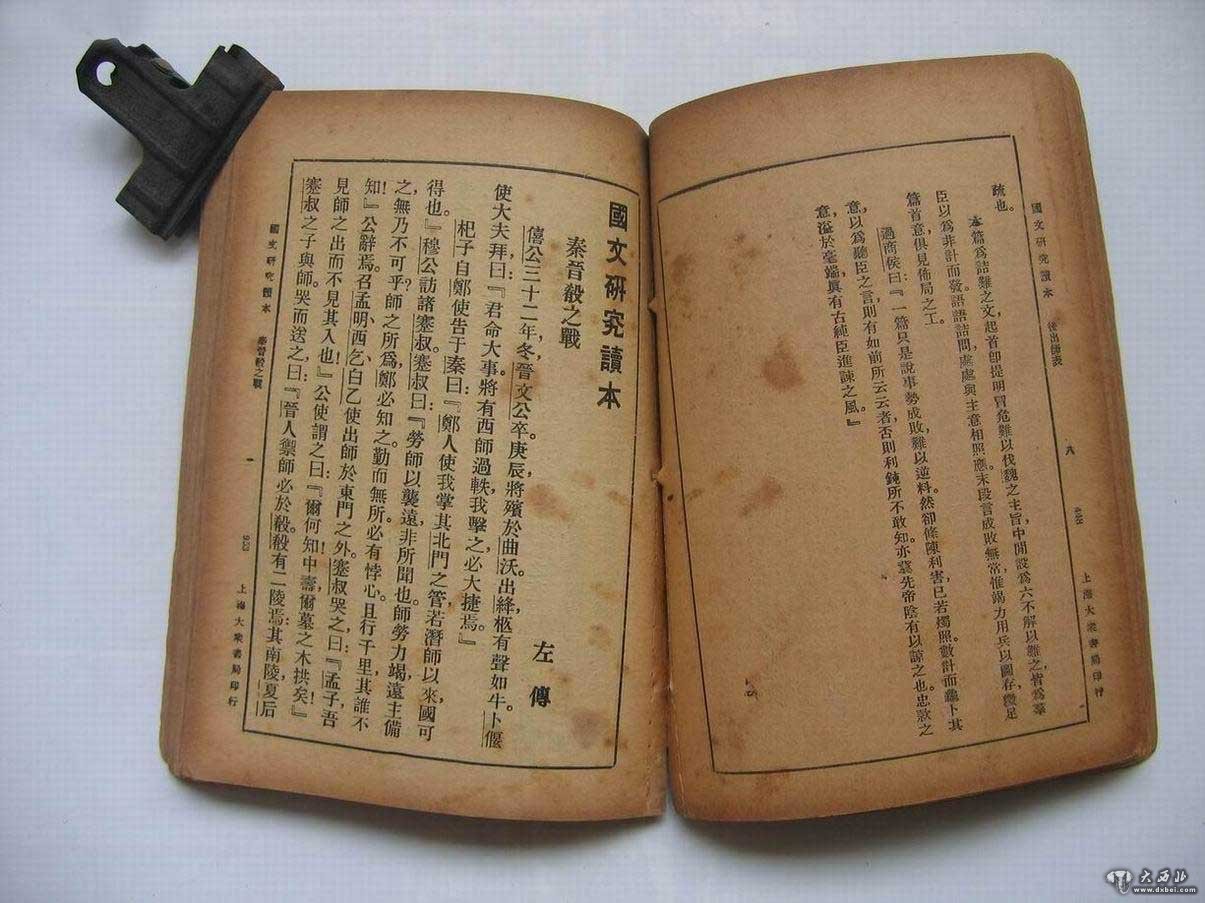 國文研究讀本　後出師表　八　438　上海大衆書局印行
疏也。
本篇爲詰難之文，起首卽提明冒危難以伐魏之主旨，中間設爲六不解以難之，皆爲羣
臣以爲非計而發，語語詰問，處處與主意相照應。末段言成敗無常，惟竭力用兵以圖存，幾足
篇首意，俱見佈局之工。
過商侯曰：『一篇只是說事勢成敗，難以逆料。然卻條陳利害，已若燭照數計而龜卜。其
意，以爲聽臣之言，則有如前所云云者，否則利鈍所不敢知，亦冀先帝陰有以諒之也。忠款之
意，溢於毫端，眞有古純臣進諫之風。』
國文研究讀本
秦晉殽之戰
左傳
僖公三十二年，冬，晉文公卒。庚辰，將殯於曲沃，出絳，柩有聲如牛。卜偃
使大夫拜，曰：『君命大事，將有西師過軼我，擊之，必大捷焉。』
杞子自鄭使告于秦曰：『鄭人使我掌其北門之管，若潛師以來，國可
得也。』穆公訪諸蹇叔，蹇叔曰：『勞師以襲遠，非所聞也。師勞力竭，遠主備
之，無乃不可乎？師之所爲，鄭必知之，勤而無所，必有悖心。且行千里，其誰不
知！』公辭焉。召孟明、西乞、白乙，使出師於東門之外。蹇叔哭之，曰：『孟子，吾
見師之出，而不見其入也！』公使謂之曰：『爾何知！中壽，爾墓之木拱矣！』
蹇叔之子與師，哭而送之，曰：『晉人禦師必於殽。殽有二陵焉：其南陵，夏后
國文研究讀本　秦晉殽之戰　一　933　上海大衆書局印行
大西北
www.dxbei.com